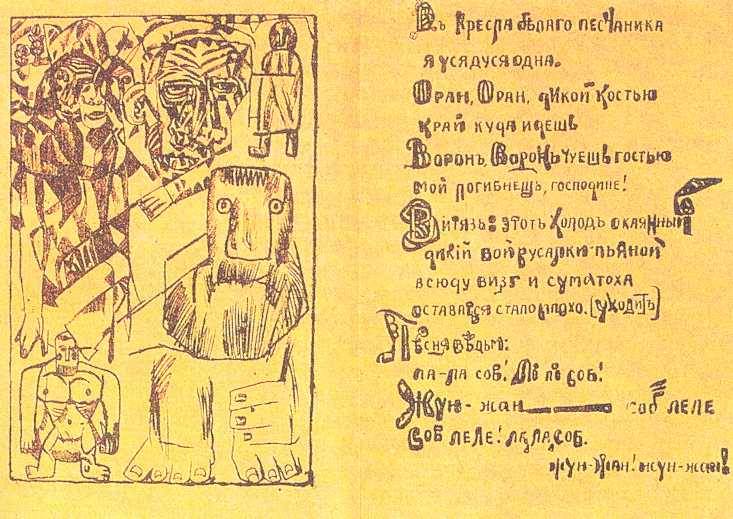 Въ кресла бѣлаго песчаника
я усядуся одна.
Оран, Оран, дикой костью
край куда идешь
Воронъ, Воронъ чуешь гостью
мой погибнешь, господине!
Витязь: этотъ холодъ окаянный
дикій вой русалки пьяной
всюду визг и суматоха
оставатся стало плохо. (уходитъ)
Пѣсня вѣдьмъ:
ла-ла сов! Ли ли соб!
Жун-жан — соб леле
соб леле! ла, ла, соб.
жун-жан! жун-жан!